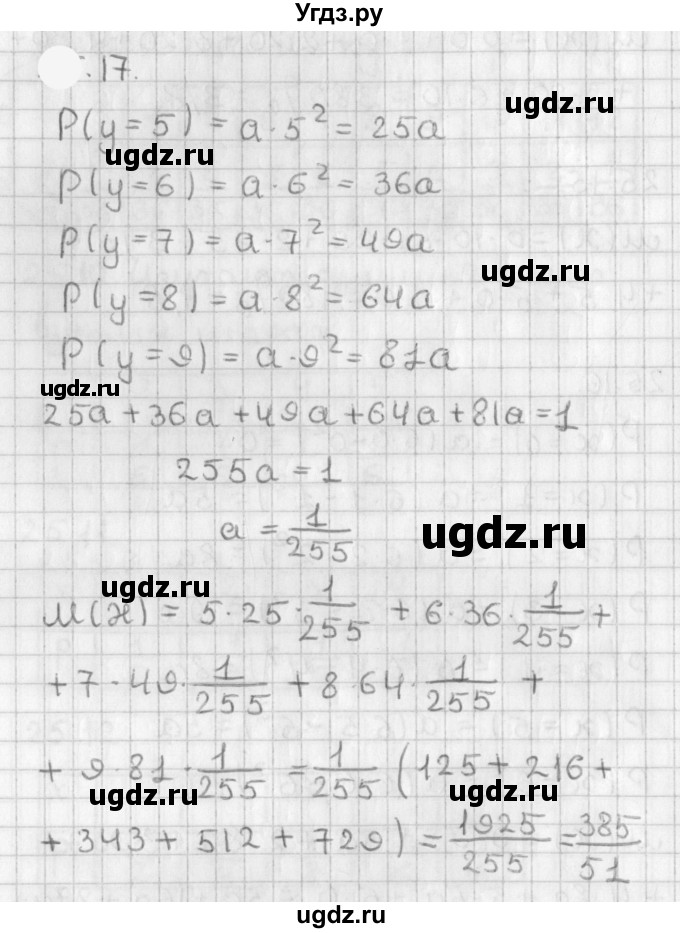 Угдз.ру
.17.
P(y=5) = a·5² = 25a
ugdz.ru
P(y=6) = a·6² = 36a
P(y=7) = a·7² = 49a
ugdz.ru
P(y=8) = a·8² = 64a
P(y=9) = a·9² = 81a
ugdz.ru
25a + 36a + 49a + 64a + 81a = 1
255a = 1
a = 1/255
ugdz.ru
ugdz.ru
M(x) = 5·25·1/255 + 6·36·1/255 +
+ 7·49·1/255 + 8·64·1/255 +
+ 9·81·1/255 = 1/255 (125 + 216 +
ugdz.ru
ugdz.ru
+ 343 + 512 + 729) = 1925/255 = 385/51
ugdz.ru